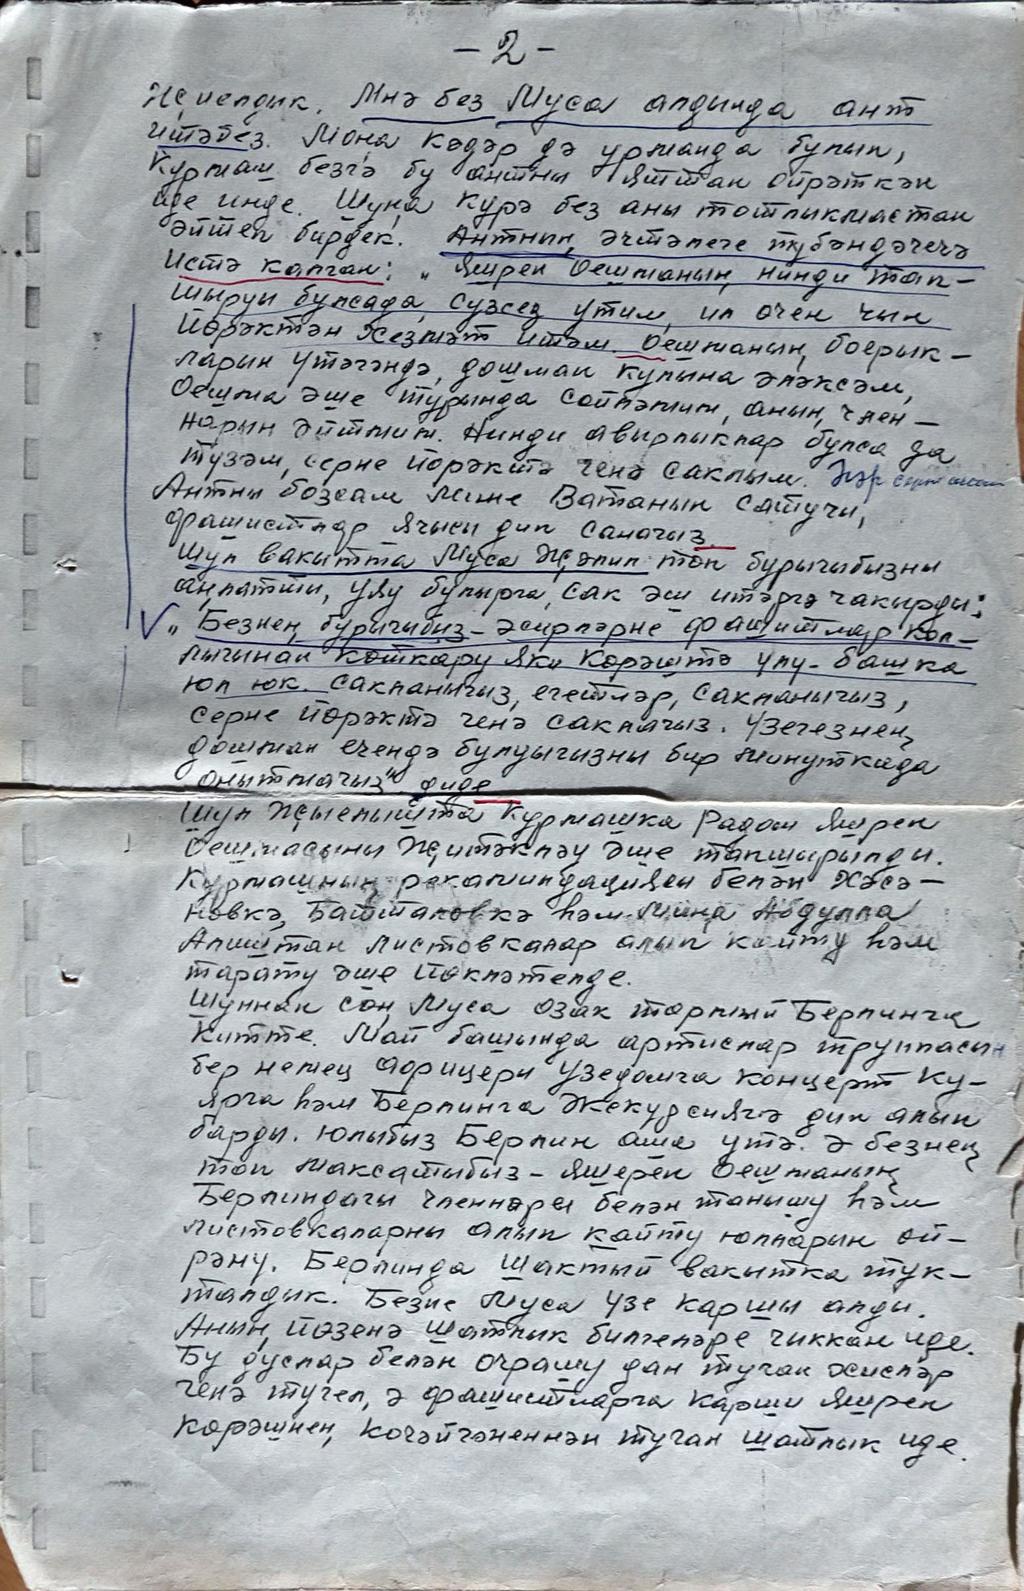 - 2 -
Җыелдык. Мнә без Муса алдында ант
итәбез. Моңа кадәр дә урманда булып,
Курмаш безгә бу антны яттан өйрәткән
иде инде. Шуңа күрә без аны тотлыкмастан
әйтеп бирдек. Антның эчтәлеге түбәндәгечә
истә калган: „Яшрен Оешманың нинди тап-
шыруы булсада, сүзсез үтим, ил өчен чын
йөрәктән хезмәт итәм. Оешманың боерык-
ларын үтәгәндә, дошман кулына эләксәм,
Оешма эше турында сөйләмим, аның член-
нарын әйтмим. Нинди авырлыклар булса да
түзәм, серне йөрәктә генә саклыйм.
Антны бозсам мине Ватанын сатучы,
фашистлар ялчысы дип санагыз.
Шул вакытта Муса Җәлил төп бурычыбызны
аңлатты, уяу булырга, сак эш итәргә чакырды:
„Безнең бурычыбыз - әсирләрне фашистлар кол-
лыгыннан коткару яки көрәштә үлү - башка
юл юк. Сакланыгыз, егетләр, сакланыгыз,
серне йөрәктә генә саклагыз. Үзегезнең
дошман өчендә булуыгызны бер минуткада
онытмагыз" диде
Шул Җыелышта Курмашка Радом яшрен
Оешмасыны Җитәкләү эше тапшырылды.
Курмашның рекаминдациясы белән Хәсә-
новкә, Батталовкә һәм миңа Абдулла
Алиштан листовкалар алып кайту һәм
тарату эше йөкләтелде.
Шуннан соң Муса озак тормый Берлинга
китте. Май башында артислар труппасын
бер немец афицеры Узедомга концерт ку-
ярга һәм Берлинга Экскурсиягә дип алып
барды. Юлыбыз Берлин аша үтә. Ә безнең
төп максатыбыз - яшерен Оешманың
Берлиндагы членнәре белән танышу һәм
листовкаларны алып кайту юлларын өй-
рәнү. Берлинда шактый вакытка тук-
талдык. Безне Муса үзе каршы алды.
Аның йөзенә шатлык билгеләре чиккан иде.
Бу дуслар белән очрашу дан туган хисләр
генә түгел, ә фашистларга каршы яшрен
көрәшнең көчәйгәненнән туган шатлык иде.